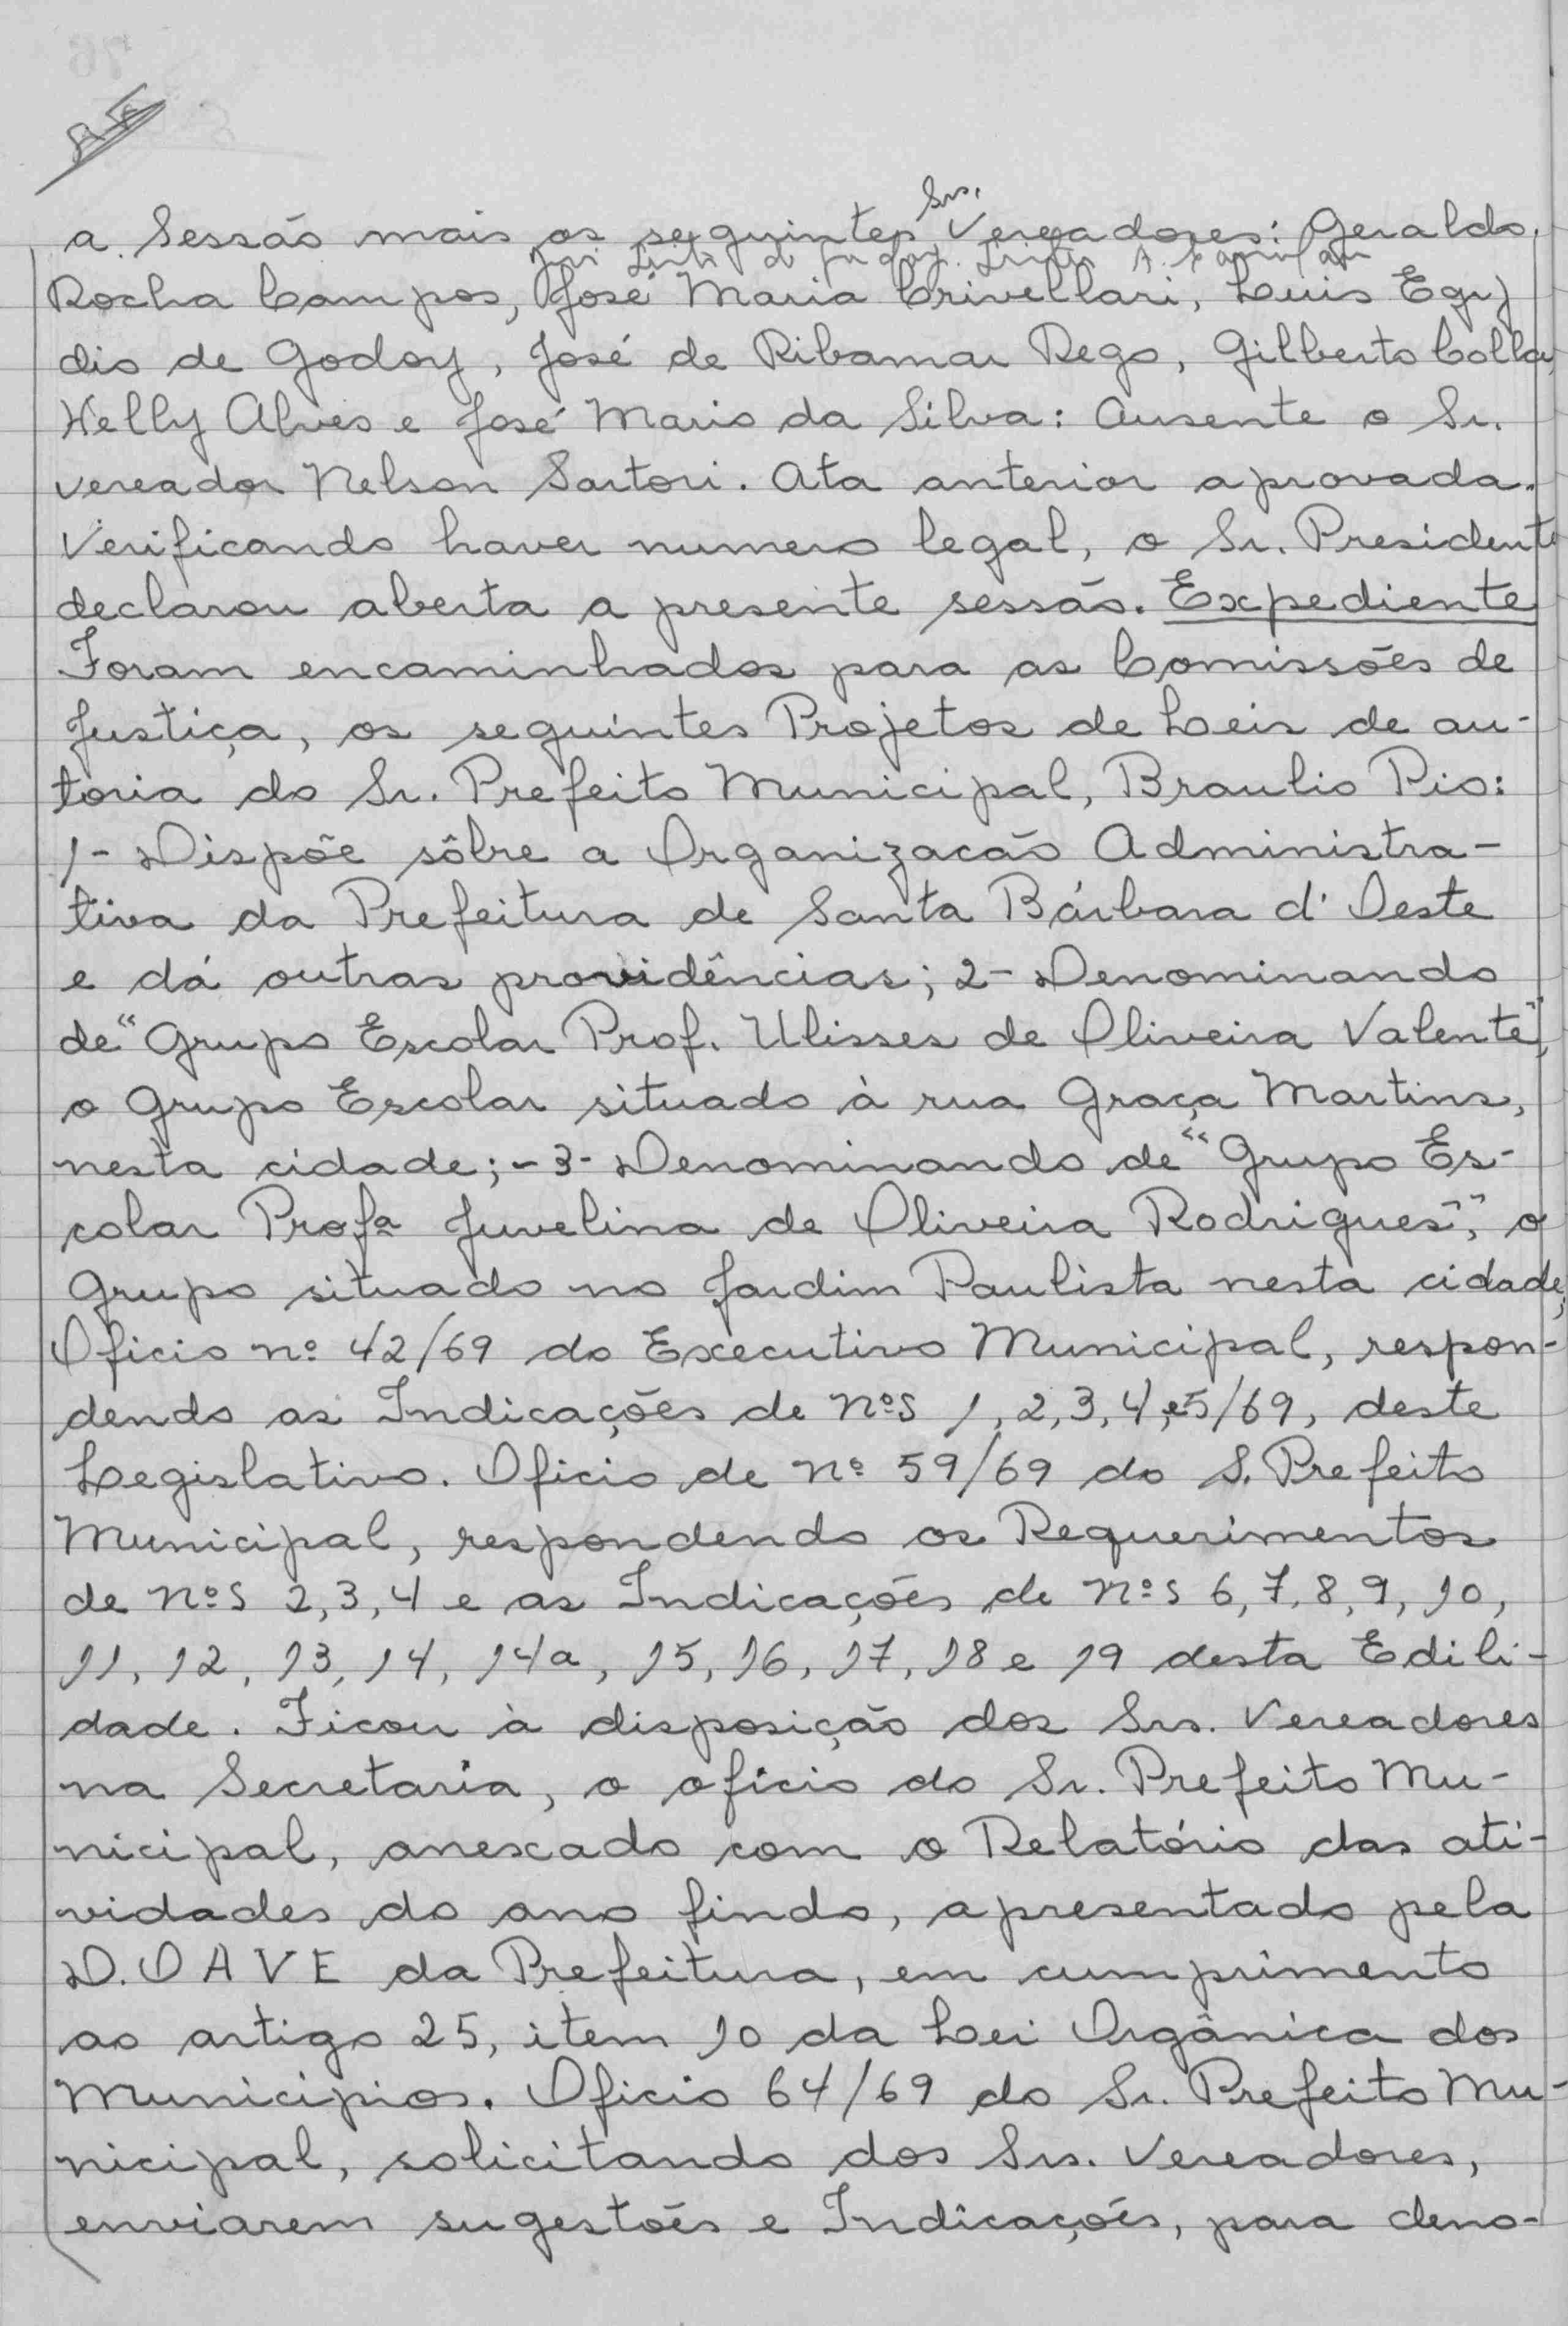 a Sessão mais os seguintes Srs. Vereadores: Geraldo
Rocha Campos, José Maria Crivellari, Luis Egy
dio de Godoy, José de Ribamar Rego, Gilberto Colla,
Welly Alves e José Mario da Silva: Ausente o Sr.
vereador Nelson Sartori. Ata anterior aprovada.
Verificando haver numero legal, o Sr. Presidente
declarou aberta a presente sessão. Expediente
Foram encaminhados para as Comissões de
Justiça, os seguintes Projetos de Leis de au-
toria do Sr. Prefeito Municipal, Braulio Pio:
1- Dispõe sôbre a Organizacão Administra-
tiva da Prefeitura de Santa Bárbara d'Oeste
e dá outras providências; 2- Denominando
de "Grupo Escolar Prof. Ulisses de Oliveira Valente",
o Grupo Escolar situado à rua Graça Martins,
nesta cidade; -3- Denominando de "Grupo Es-
colar Profa Juvelina de Oliveira Rodrigues", o
Grupo situado no Jardim Paulista nesta cidade;
Oficio nº 42/69 do Executivo Municipal, respon-
dendo as Indicações de Nºs 1, 2, 3, 4, e 5/69, deste
Legislativo. Oficio de nº 59/69 do S. Prefeito
Municipal, respondendo os Requerimentos
de Nºs 2, 3, 4 e as Indicações de Nºs 6, 7, 8, 9, 10,
11, 12, 13, 14, 14a, 15, 16, 17, 18 e 19 desta Edili-
dade. Ficou à disposição dos Srs. Vereadores
na Secretaria, o oficio do Sr. Prefeito Mu-
nicipal, anexado com o Relatório das ati-
vidades do ano findo, apresentado pela
D.O A V E da Prefeitura, em cumprimento
ao artigo 25, item 10 da Lei Orgânica dos
Municipios. Oficio 64/69 do Sr. Prefeito Mu-
nicipal, solicitando dos Srs. Vereadores,
enviarem sugestões e Indicações, para deno-